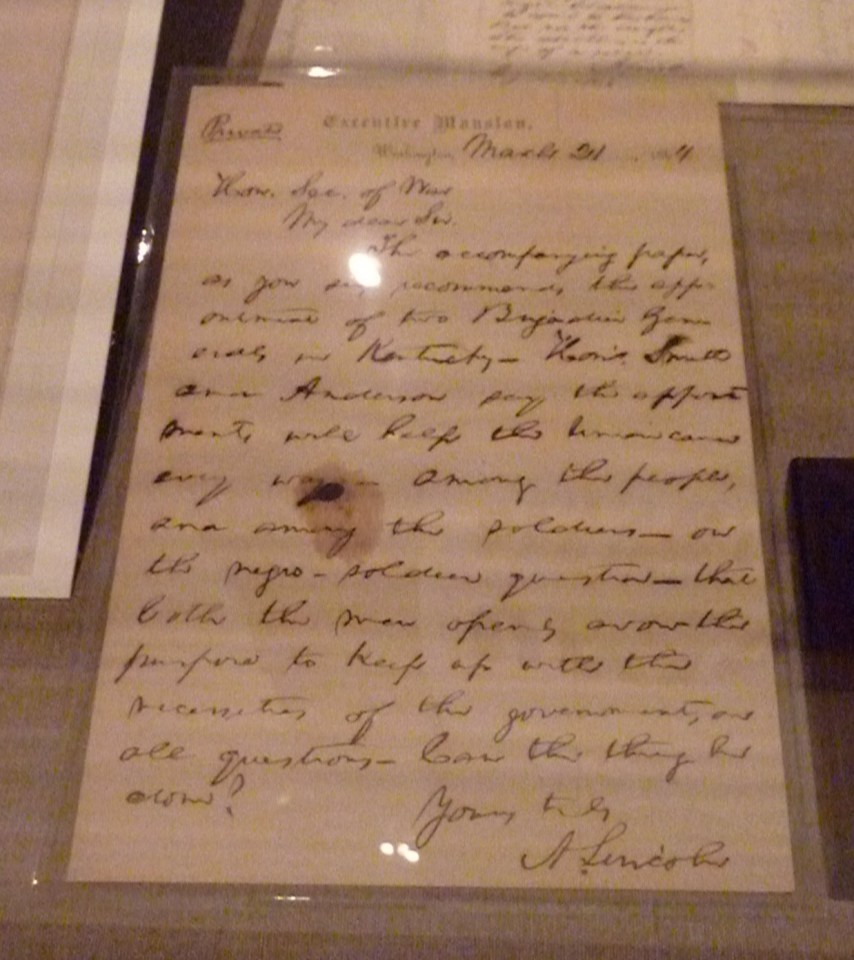 Private
Executive Mansion,
Washington, March 21 4
Hon. Sec. of War
My dear Sir.
The accompanying paper,
as you see, recommends the appo-
intment of two Brigadier Gen-
erals in Kentucky— Hon's. Smith
and Anderson say the appoint
ments will help the Union cause
every way — among the people,
and among the soldiers— on
the negro-soldier question— that
both the men openly avow the
purpose to keep up with the
necessities of the government, on
all questions— Can the thing be
done?
Yours truly
A. Lincoln